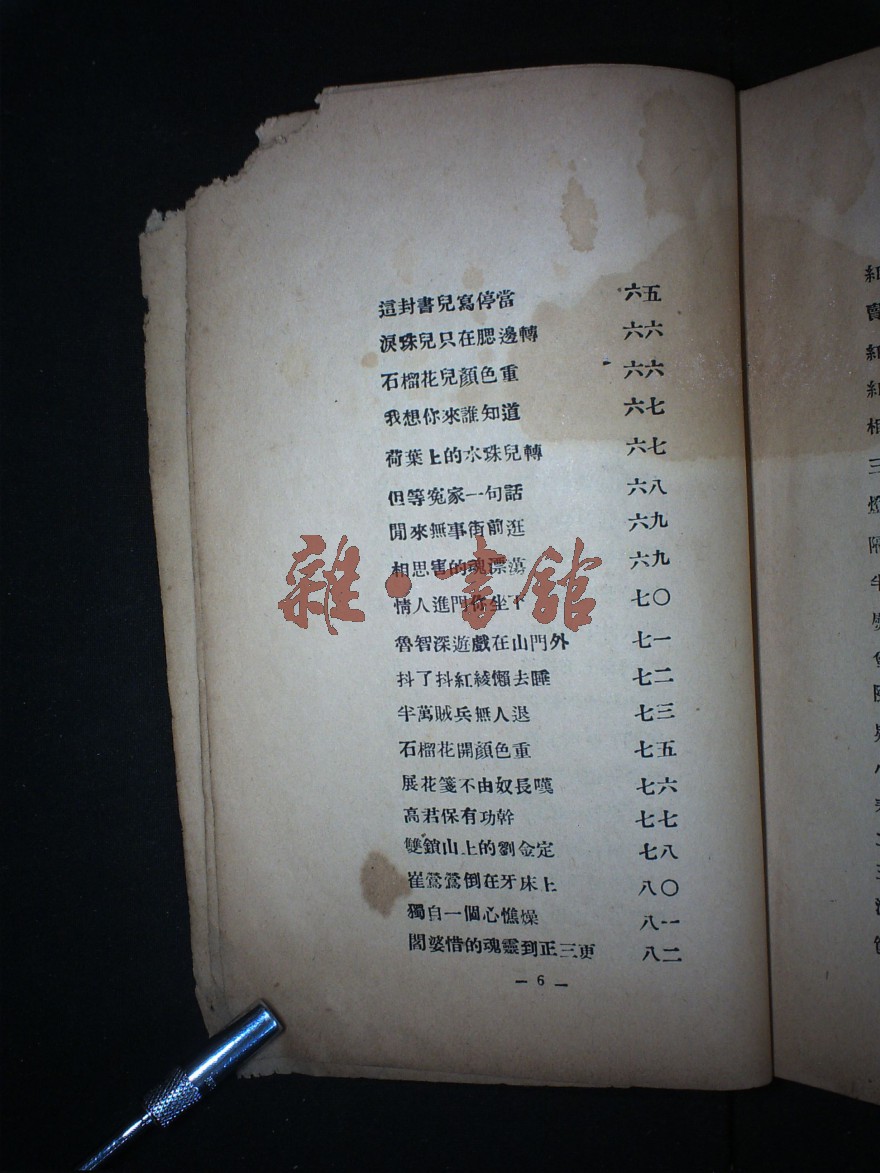 這封書兒寫停當 六五
淚珠兒只在腮邊轉 六六
石榴花兒顏色重 六六
我想你來誰知道 六七
荷葉上的水珠兒轉 六七
但等寃家一句話 六八
閒來無事街前逛 六九
相思害的魂漂蕩 六九
情人進門你坐下 七〇
魯智深遊戲在山門外 七一
抖了抖紅綾懶去睡 七二
半萬賊兵無人退 七三
石榴花開顏色重 七五
展花箋不由奴長嘆 七六
高君保有功幹 七七
雙鎖山上的劉金定 七八
崔鶯鶯倒在牙床上 八〇
獨自一個心憔燥 八一
閻婆惜的魂靈到正三更 八二
— 6 —
雜·書館
賣
相
三
燈
隔
半